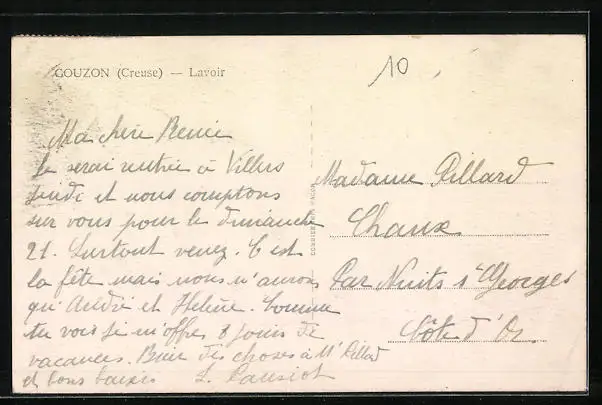 COUZON (Creuse) — Lavoir
10
Ma chère Renée
Je serai rentrée à Villers
jeudi et nous comptons
sur vous pour le dimanche
21. Surtout venez. C'est
la fête mais nous n'aurons
qu'André et Hélène. Comme
tu vois je m'offre 8 jours de
vacances. Bien des choses à Mr Pillard
et bons baisers L.
Madame Pillard
Chaux
Par Nuits St Georges
Côte d'Or